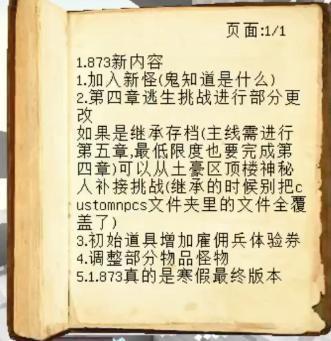 页面:1/1
1.873新内容
1.加入新怪(鬼知道是什么)
2.第四章逃生挑战进行部分更
改
如果是继承存档(主线需进行
第五章,最低限度也要完成第
四章)可以从土豪区顶楼神秘
人补接挑战(继承的时候别把c
ustomnpcs文件夹里的文件全覆
盖了)
3.初始道具增加雇佣兵体验券
4.调整部分物品怪物
5.1.873真的是寒假最终版本